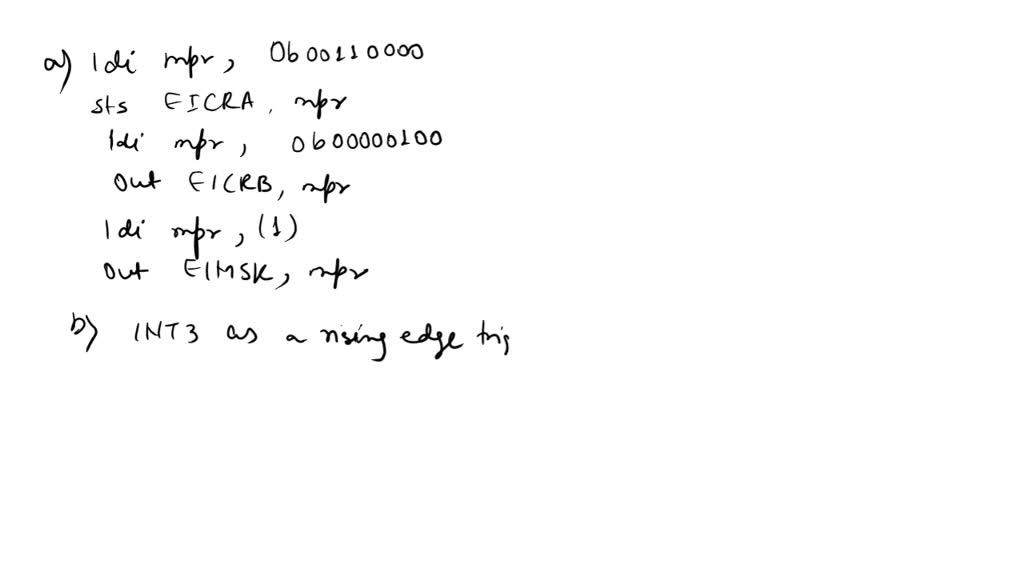 a) ldi mpr, 0b00110000
sts EICRA, mpr
ldi mpr, 0b00000100
out EICRB, mpr
ldi mpr, (1)
out EIMSK, mpr
b) INT3 as a rising edge trig